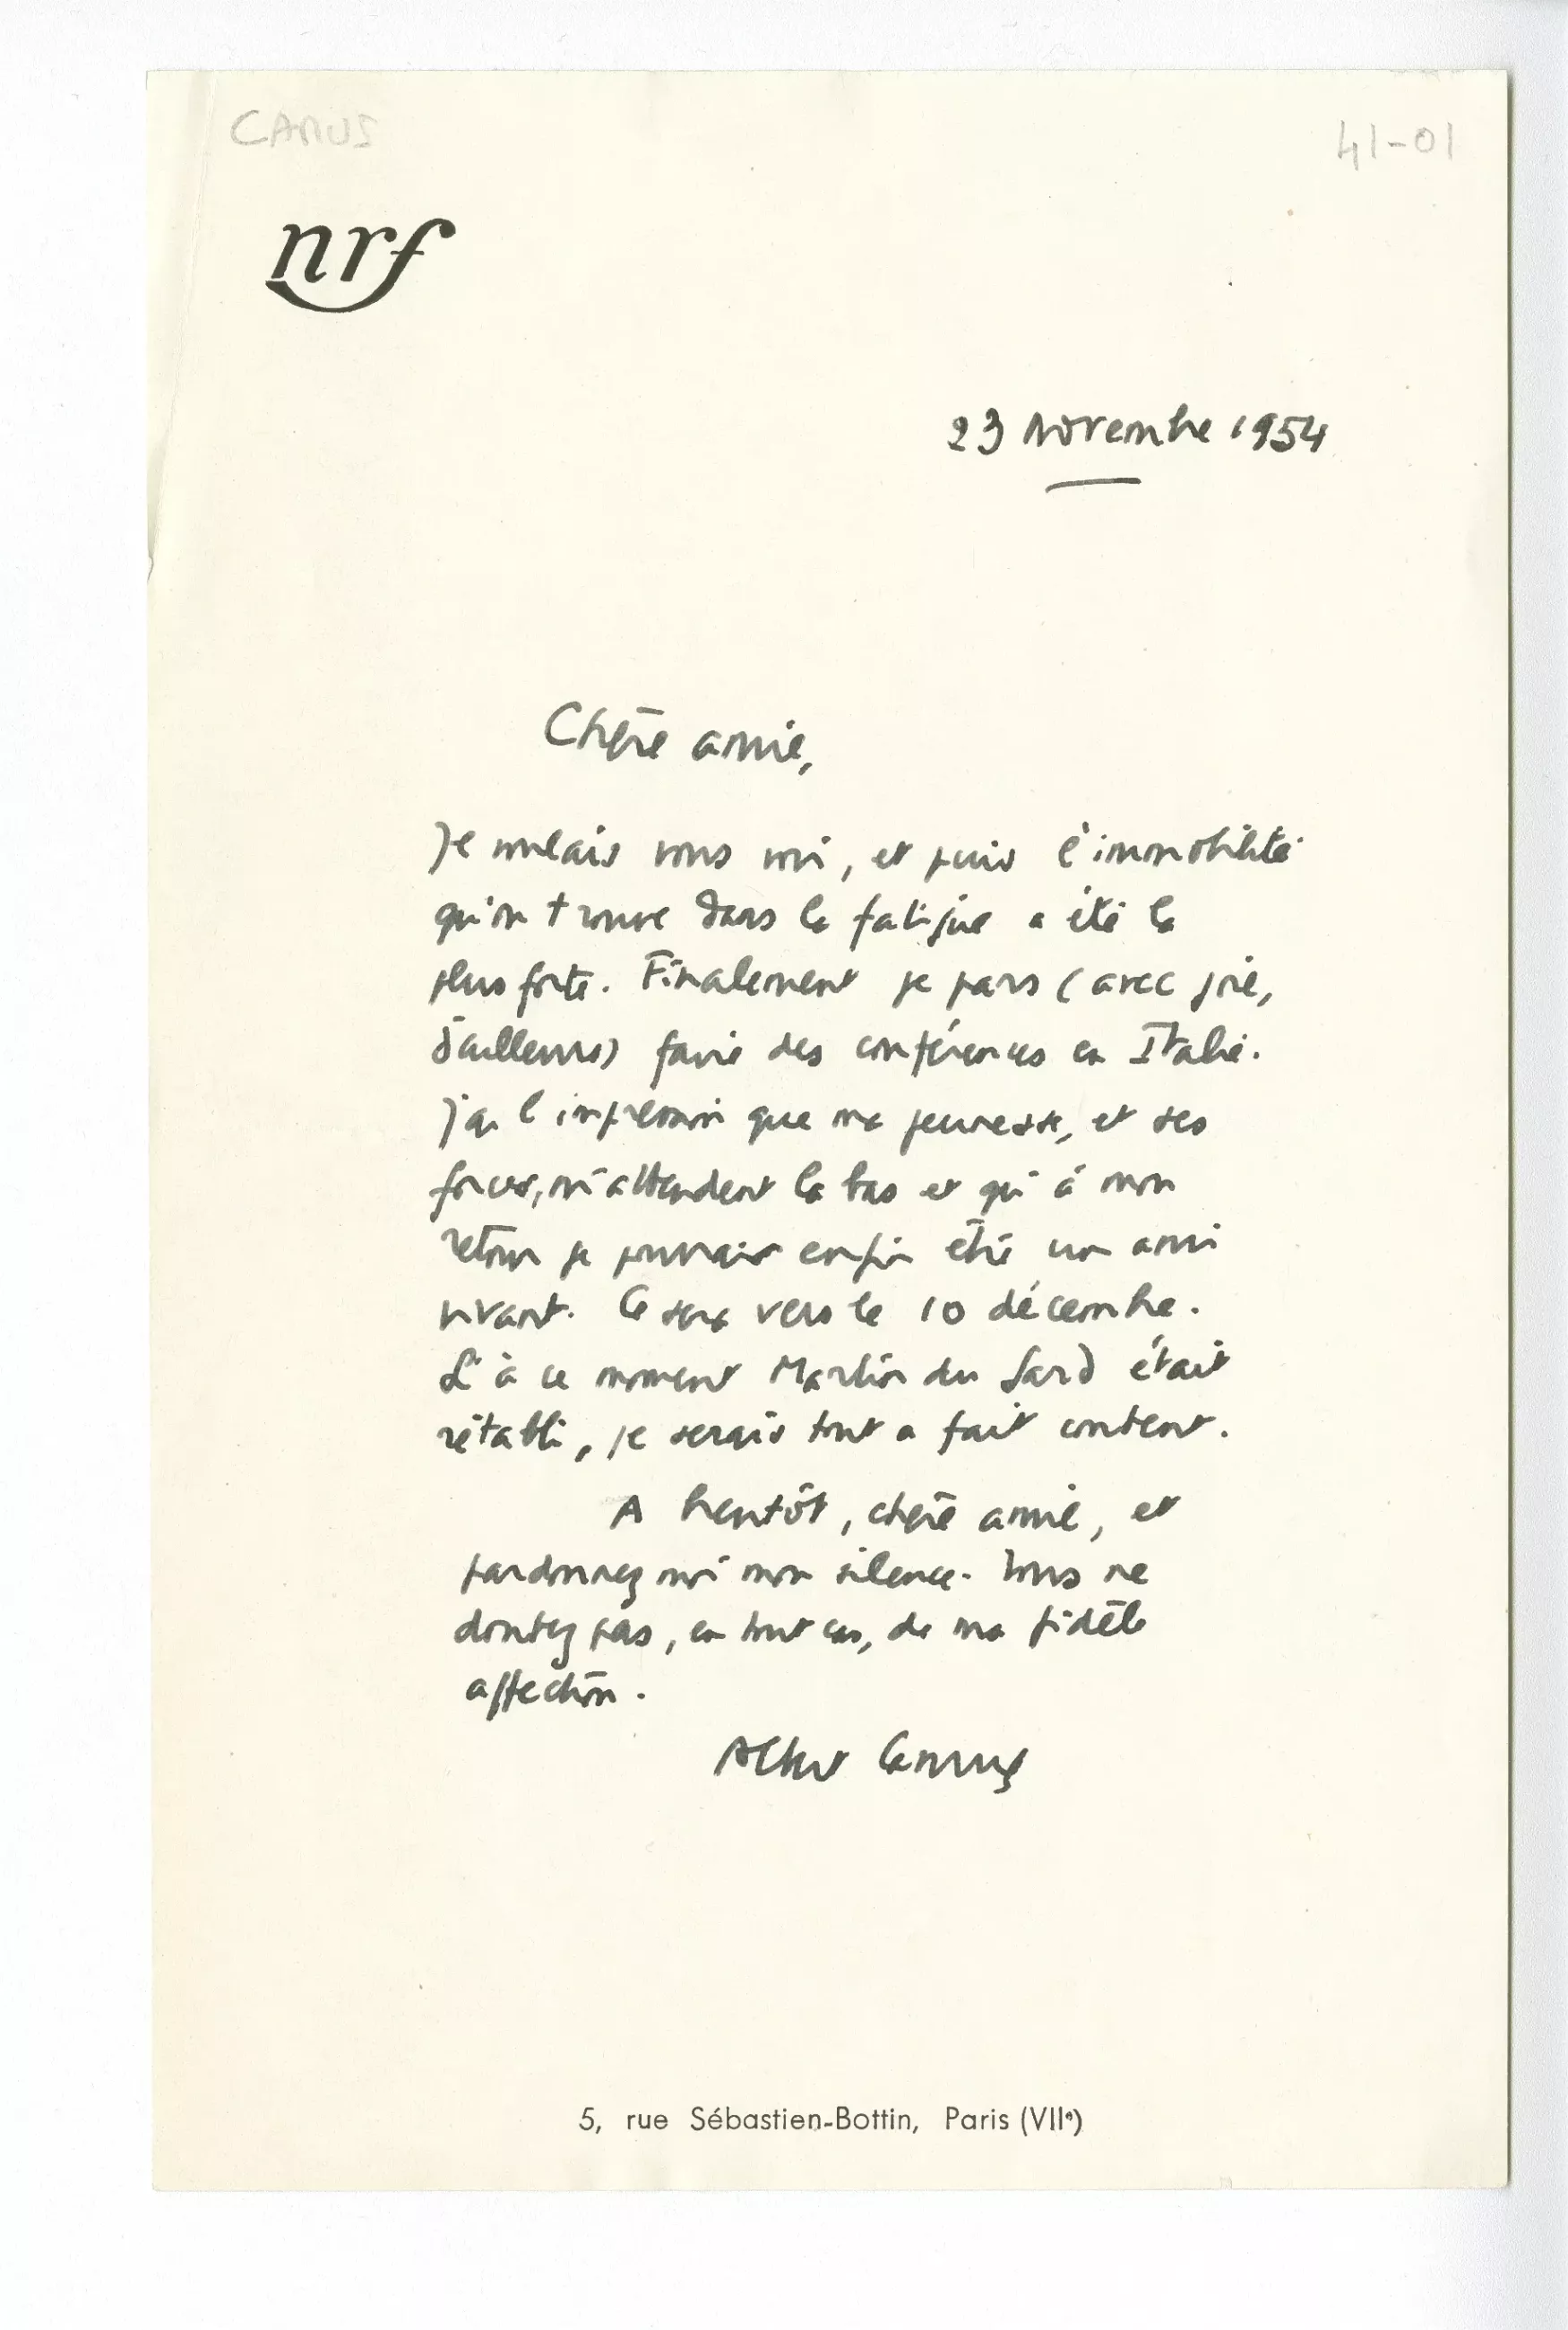 CAMUS
41-01
nrf
23 novembre 1954
Chère amie,
Je voulais vous voir, et puis l'immobilité
qu'on trouve dans la fatigue a été la
plus forte. Finalement je pars (avec joie,
d'ailleurs) faire des conférences en Italie.
J'ai l'impression que ma jeunesse, et ses
forces, m'attendent là bas et qu'à mon
retour je pourrais enfin être un ami
vivant. Ce sera vers le 10 décembre.
Si à ce moment Martin du Gard était
rétabli, je serais tout a fait content.
A bientôt, chère amie, et
pardonnez moi mon silence. Vous ne
doutez pas, en tout cas, de ma fidèle
affection.
Albert Camus
5, rue Sébastien-Bottin, Paris (VIIe)